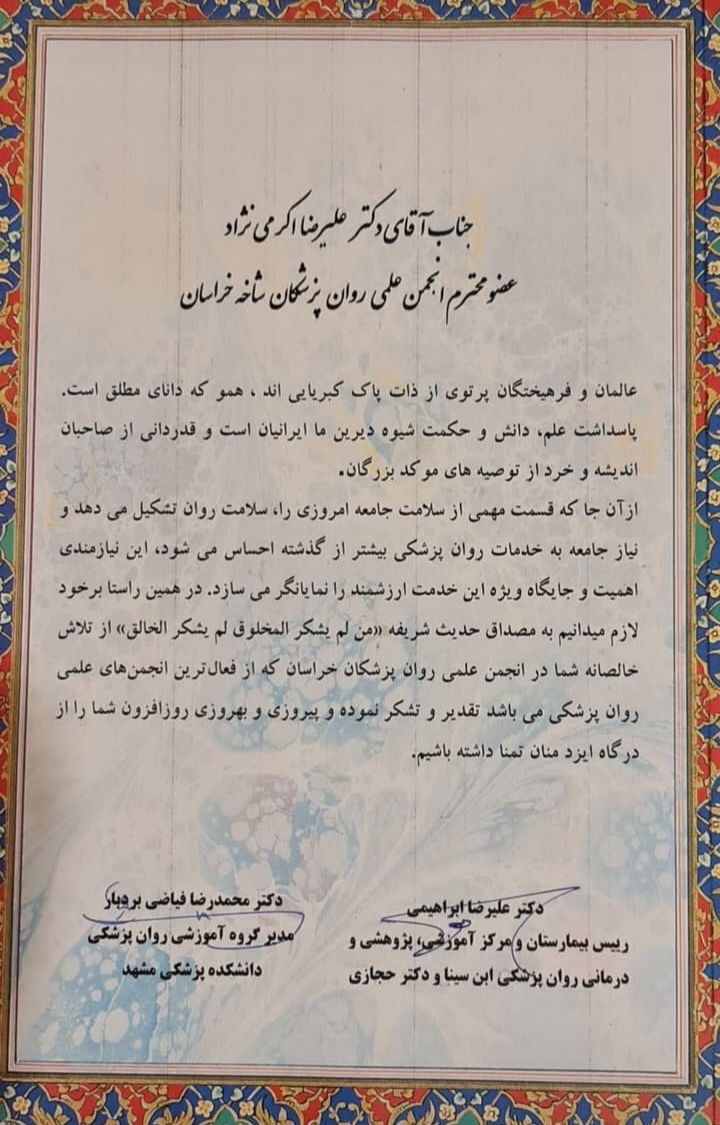 جناب آقای دکتر علیرضا اکرمی نژاد
عضو محترم انجمن علمی روان پزشکان شاخه خراسان
عالمان و فرهیختگان پرتوی از ذات پاک کبریایی اند ، همو که دانای مطلق است.
پاسداشت علم، دانش و حکمت شیوه دیرین ما ایرانیان است و قدردانی از صاحبان
اندیشه و خرد از توصیه های موکد بزرگان.
ازآن جا که قسمت مهمی از سلامت جامعه امروزی را، سلامت روان تشکیل می دهد و
نیاز جامعه به خدمات روان پزشکی بیشتر از گذشته احساس می شود، این نیازمندی
اهمیت و جایگاه ویژه این خدمت ارزشمند را نمایانگر می سازد. در همین راستا برخود
لازم میدانیم به مصداق حدیث شریفه «من لم یشکر المخلوق لم یشکر الخالق» از تلاش
خالصانه شما در انجمن علمی روان پزشکان خراسان که از فعال‌ترین انجمن‌های علمی
روان پزشکی می باشد تقدیر و تشکر نموده و پیروزی و بهروزی روزافزون شما را از
درگاه ایزد منان تمنا داشته باشیم.
دکتر علیرضا ابراهیمی
رییس بیمارستان و مرکز آموزشی، پژوهشی و
درمانی روان پزشکی ابن سینا و دکتر حجازی
دکتر محمدرضا فیاضی بردبار
مدیر گروه آموزشی روان پزشکی
دانشکده پزشکی مشهد